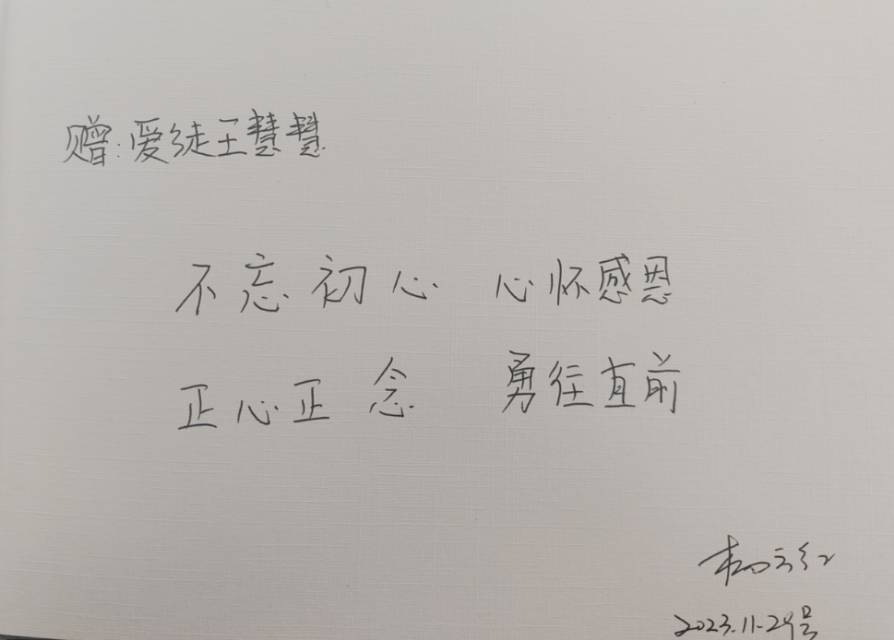 赠:爱徒王慧慧
不忘初心 心怀感恩
正心正念 勇往直前
杨云红
2023.11-29号